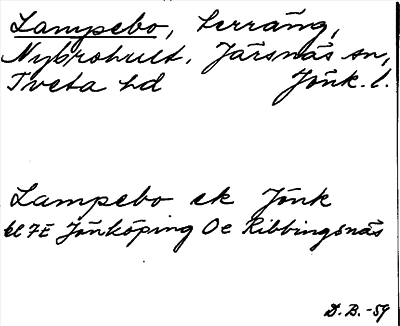 Lampebo, terräng,
Nybrohult, Järsnäs sn,
Tveta hd Jönk. l.
Lampebo ek Jönk
bl 7E Jönköping Oe Ribbingsnäs
D. B. -59